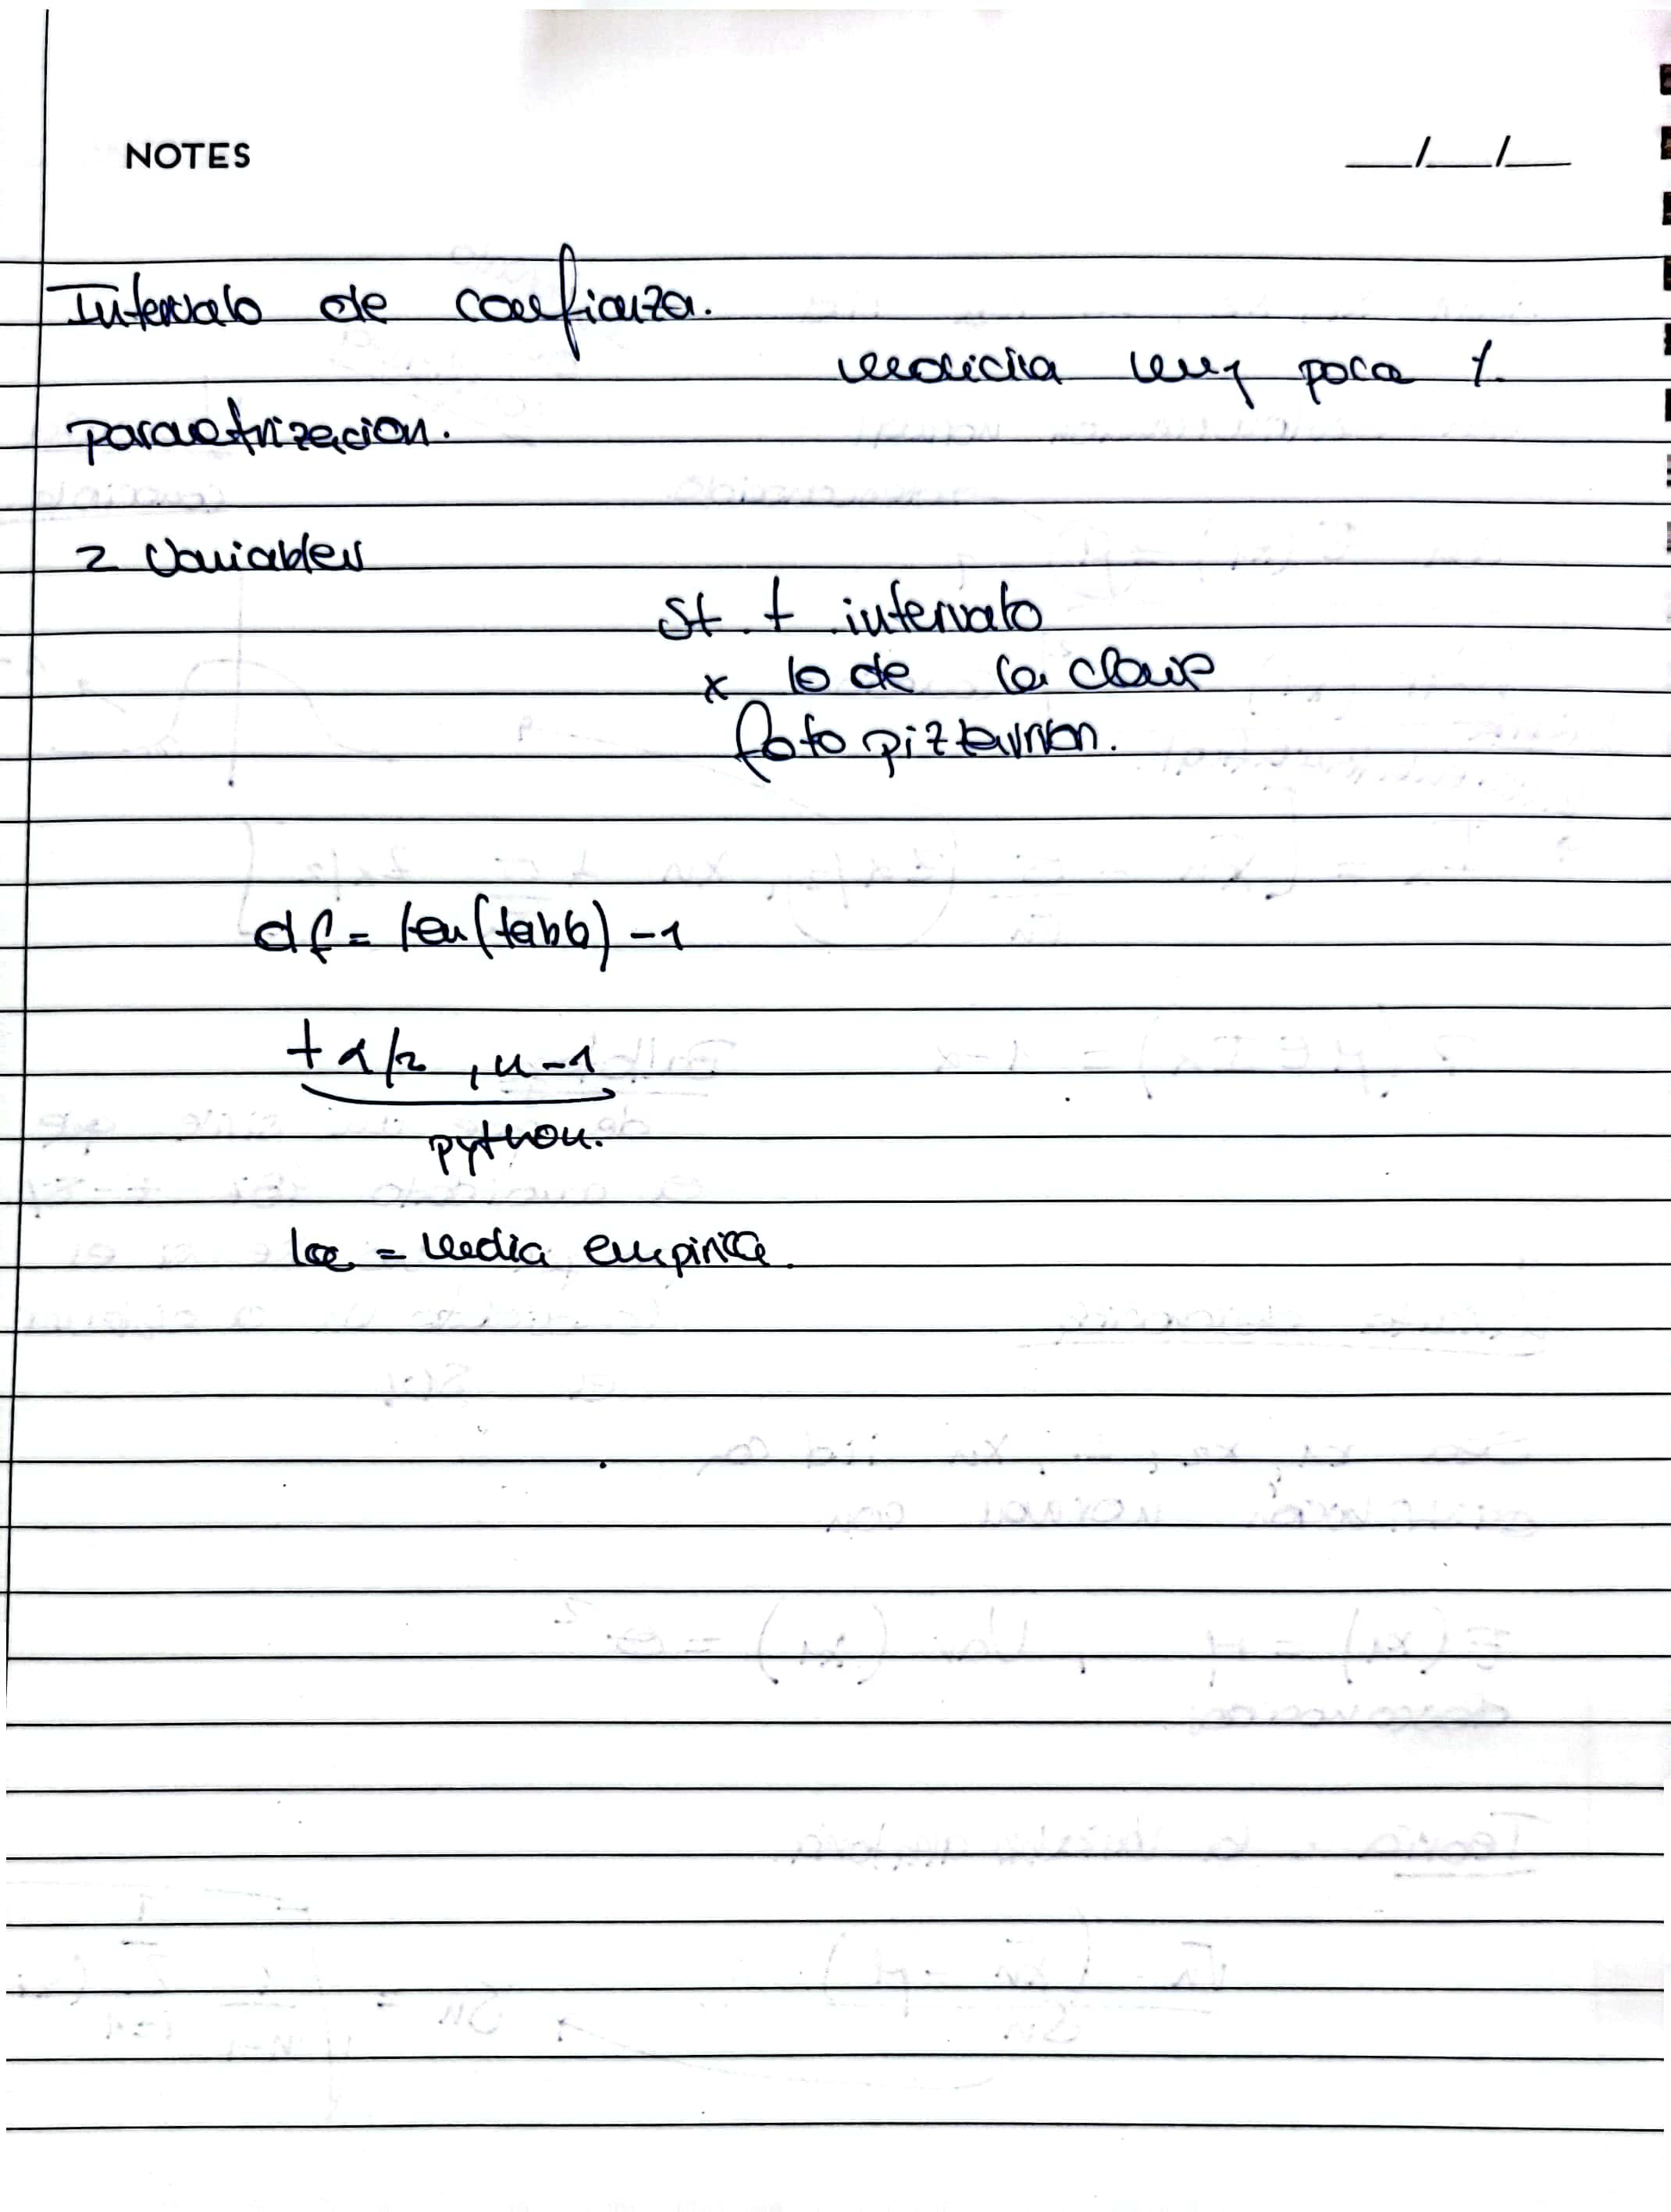 NOTES
__/__/__
Intervalo de confianza.
muy poca %
parametrización.
2 variables
st. t intervalo
x lo de la clase
foto pizarron.
df = len(tabb) -1
t α/2 , n-1
python.
loc = media empirica.